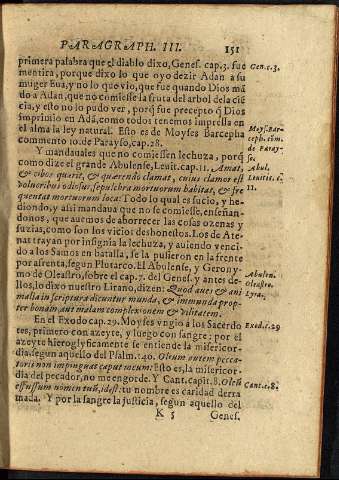 PARAGRAPH. III. 151
primera palabra que el diablo dixo, Genes. cap. 3. fue Gen. c. 3.
mentira, porque dixo lo que oyo dezir Adan a su
muger Eua, y no lo que vio, que fue quando Dios mã
do a Adan, que no comiesse la fruta del arbol de la ciẽ
cia, y esto no lo pudo ver, porq̃ fue precepto q̃ Dios
imprimio en Adã, como todos tenemos impressa en
el alma la ley natural. Esto es de Moyses Barcepha Moyses Bar-
commento 10. de Parayso, cap. 28. ceph. cõm.
Y mandauales que no comiessen lechuza, porq̃ de Paray-
como dize el grande Abulense, Leuit. cap. 11. Amat, so.
& cibos querit, & quærendo clamat, cuius clamor est Abul.
volucribus odiosus, sepulchra mortuorum habitat, & fre Leuitic. c.
quentat mortuorum loca: Todo lo qual es suzio, y he- 11.
diondo, y assi mandaua que no se comiesse, enseñan-
donos, que auemos de aborrecer las cosas ozenas y
suzias, como son los vicios deshonestos. Los de Ate-
nas trayan por insignia la lechuza, y auiendo venci-
do a los Samos en batalla, se la pusieron en la frente
por afrenta, segun Plutarco. El Abulense, y Gerony-
mo de Oleastro, sobre el cap. 7. del Genes. y antes de- Abulen.
llos, lo dixo nuestro Lirano, dizen: Quod aues & ani Oleastro.
malia in scriptura dicuntur munda, & immunda prop- Lyra.
ter bonam, aut malam complexionem & vtilitatem.
En el Exodo cap. 29. Moyses vngio a los Sacerdo Exod. c. 29
tes, primero con azeyte, y luego con sangre: por el
azeyte hieroglyficamente se entiende la misericor-
dia, segun aquello del Psalm. 140. Oleum autem pecca-
toris non impinguet caput meum: Esto es, la misericor-
dia del pecador, no me engorde. Y Cant. capit. 8. Oleũ Cant. c. 8.
effussum nomen tuũ, idest: tu nombre es caridad derra
mada. Y por la sangre la justicia, segun aquello del
K 3 Genes.